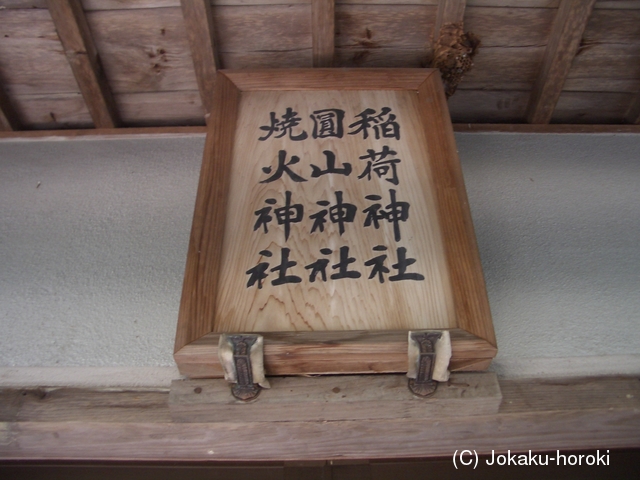 稲荷神社
圓山神社
焼火神社
(C) Jokaku-horoki